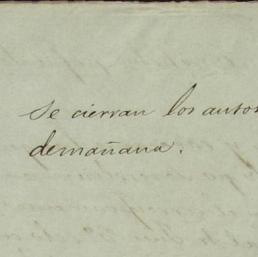 Se cierran los autos
demañana.